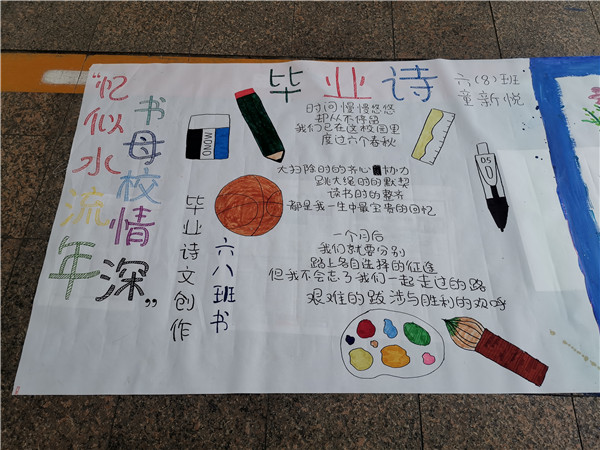 “忆似水流年
书母校情深”
毕业诗文创作
六八班书
MONO
毕业诗
六(8)班
童新悦
时间慢慢悠悠
却从不停留
我们已在这校园里
度过六个春秋
大扫除时的齐心协力
跳大绳时的默契
读书时的整齐
都是我一生中最宝贵的回忆
一个月后
我们就要分别
踏上各自选择的征途
但我不会忘了我们一起走过的路
艰难的跋涉与胜利的欢呼